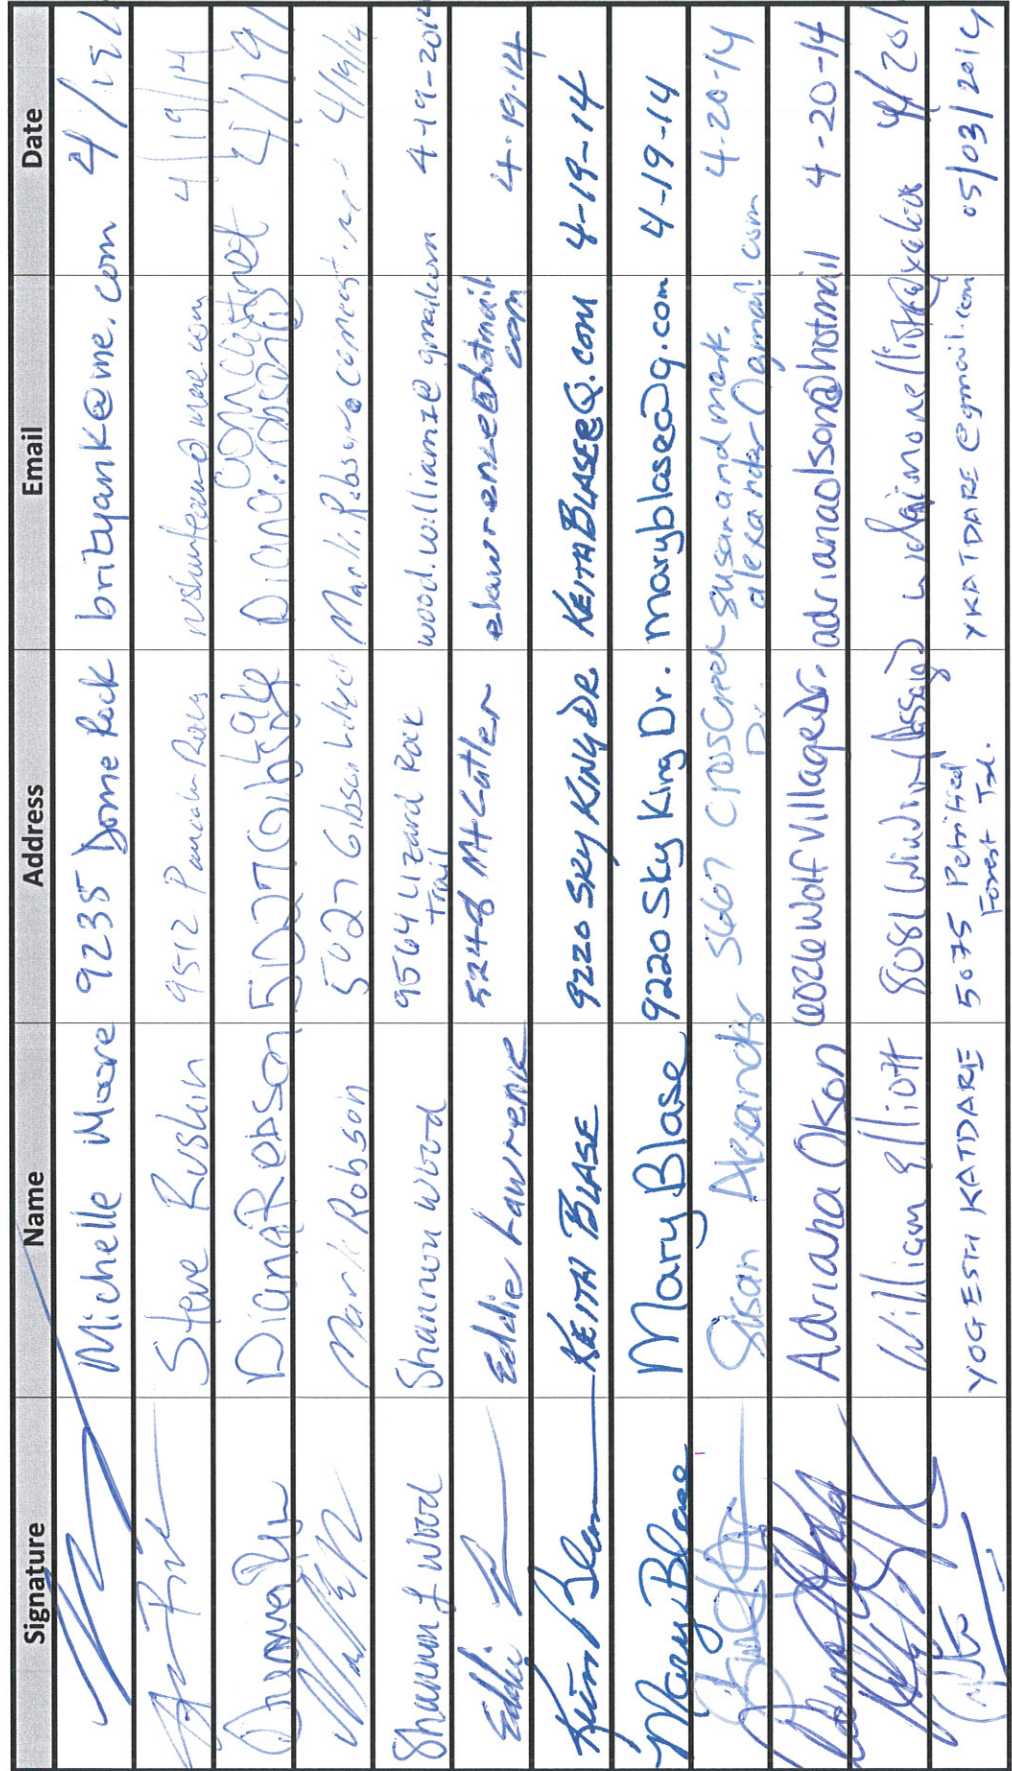 Signature Name Address Email Date
Michelle Moore 9235 Dome Rock brityank@me.com 4/19/
Steve Rushin 9512 4/19/14
Diana Robson 5027 Gibson Lake Diana.robson@comcast.net 4/19/
Mark Robson 5027 Gibson Lake Mark.Robson@comcast.net 4/19/14
Shannon L Wood Shannon Wood 9564 Lizard Rock Trail wood.william72@gmail.com 4-19-2014
Eddie Eddie Lawrence 5248 Mt Cutler elawrence@hotmail.com 4-19-14
Keith Blase KEITH BLASE 9220 SKY KING DR. KEITHBLASE@Q.COM 4-19-14
Mary Blase Mary Blase 9220 Sky King Dr. maryblase@q.com 4-19-14
Susan Alexander 3667 Cross Creek Dr susanandmark.alexander@gmail.com 4-20-14
Adriana Olson Wolf Village Dr. adrianaolson@hotmail 4-20-14
William Elliott 8081 Passage 4/20/
YOGESH KATDARE 5075 Petrified Forest Trl. YKATDARE@gmail.com 05/03/2014